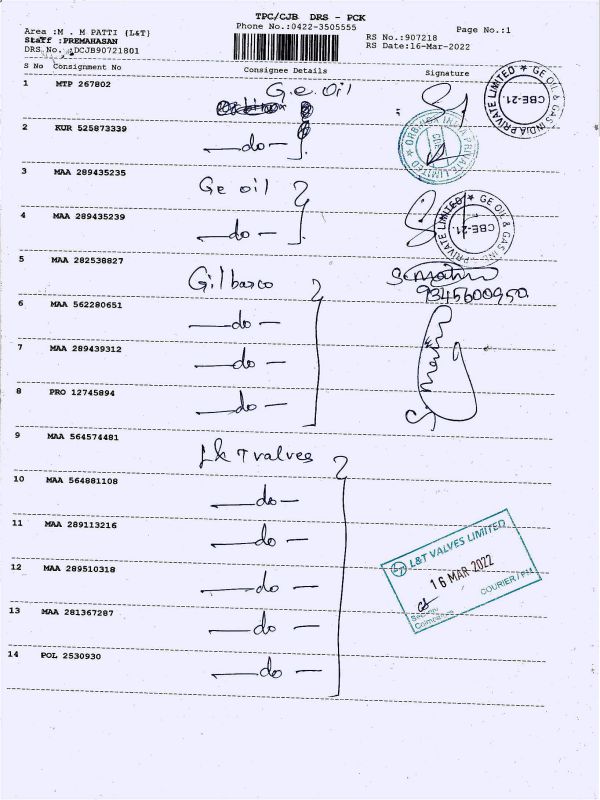 TPC/CJB DRS - PCK
Phone No.:0422-3505555
Page No.:1
Area :M . M PATTI {L&T}
Staff :PREMAHASAN
DRS No. :DCJB90721801
RS No.:907218
RS Date:16-Mar-2022
S No Consignment No Consignee Details Signature
1 MTP 267802 G.e. Oil
GE OIL & GAS INDIA PRIVATE LIMITED
CBE-21
2 KUR 525873339 —do—
INDIA PRIVATE LIMITED
3 MAA 289435235 Ge oil
4 MAA 289435239 —do—
GE OIL & GAS IND PRIVATE LIMITED
CBE-21
5 MAA 282538827 Gilbarco
9345600950
6 MAA 562280651 —do—
7 MAA 289439312 —do—
8 PRO 12745894 —do—
9 MAA 564574481 L&T valves
10 MAA 564881108 —do—
11 MAA 289113216 —do—
12 MAA 289510318 —do—
13 MAA 281367287 —do—
14 POL 2530930 —do—
L&T VALVES LIMITED
16 MAR 2022
COURIER /